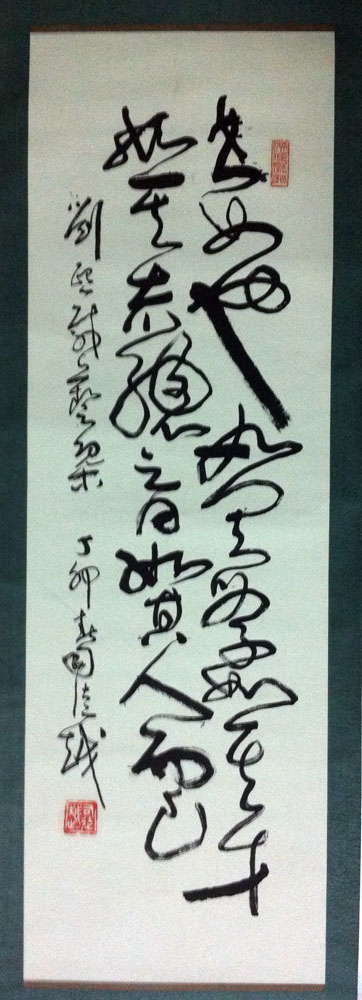 書如也如其學如其才
如其志總之曰如其人而已
劉熙載藝概 丁卯春司徒越